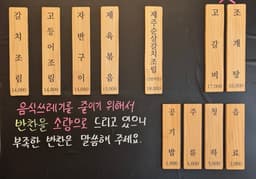 갈치조림 14,000
고등어조림 14,000
자반구이 14,000
제육볶음
제주은갈치조림
고갈비 17,000
조개탕
음식쓰레기를 줄이기 위해서
반찬을 소량으로 드리고 있으니
부족한 반찬은 말씀해 주세요.
공기밥
주류
청하
음료